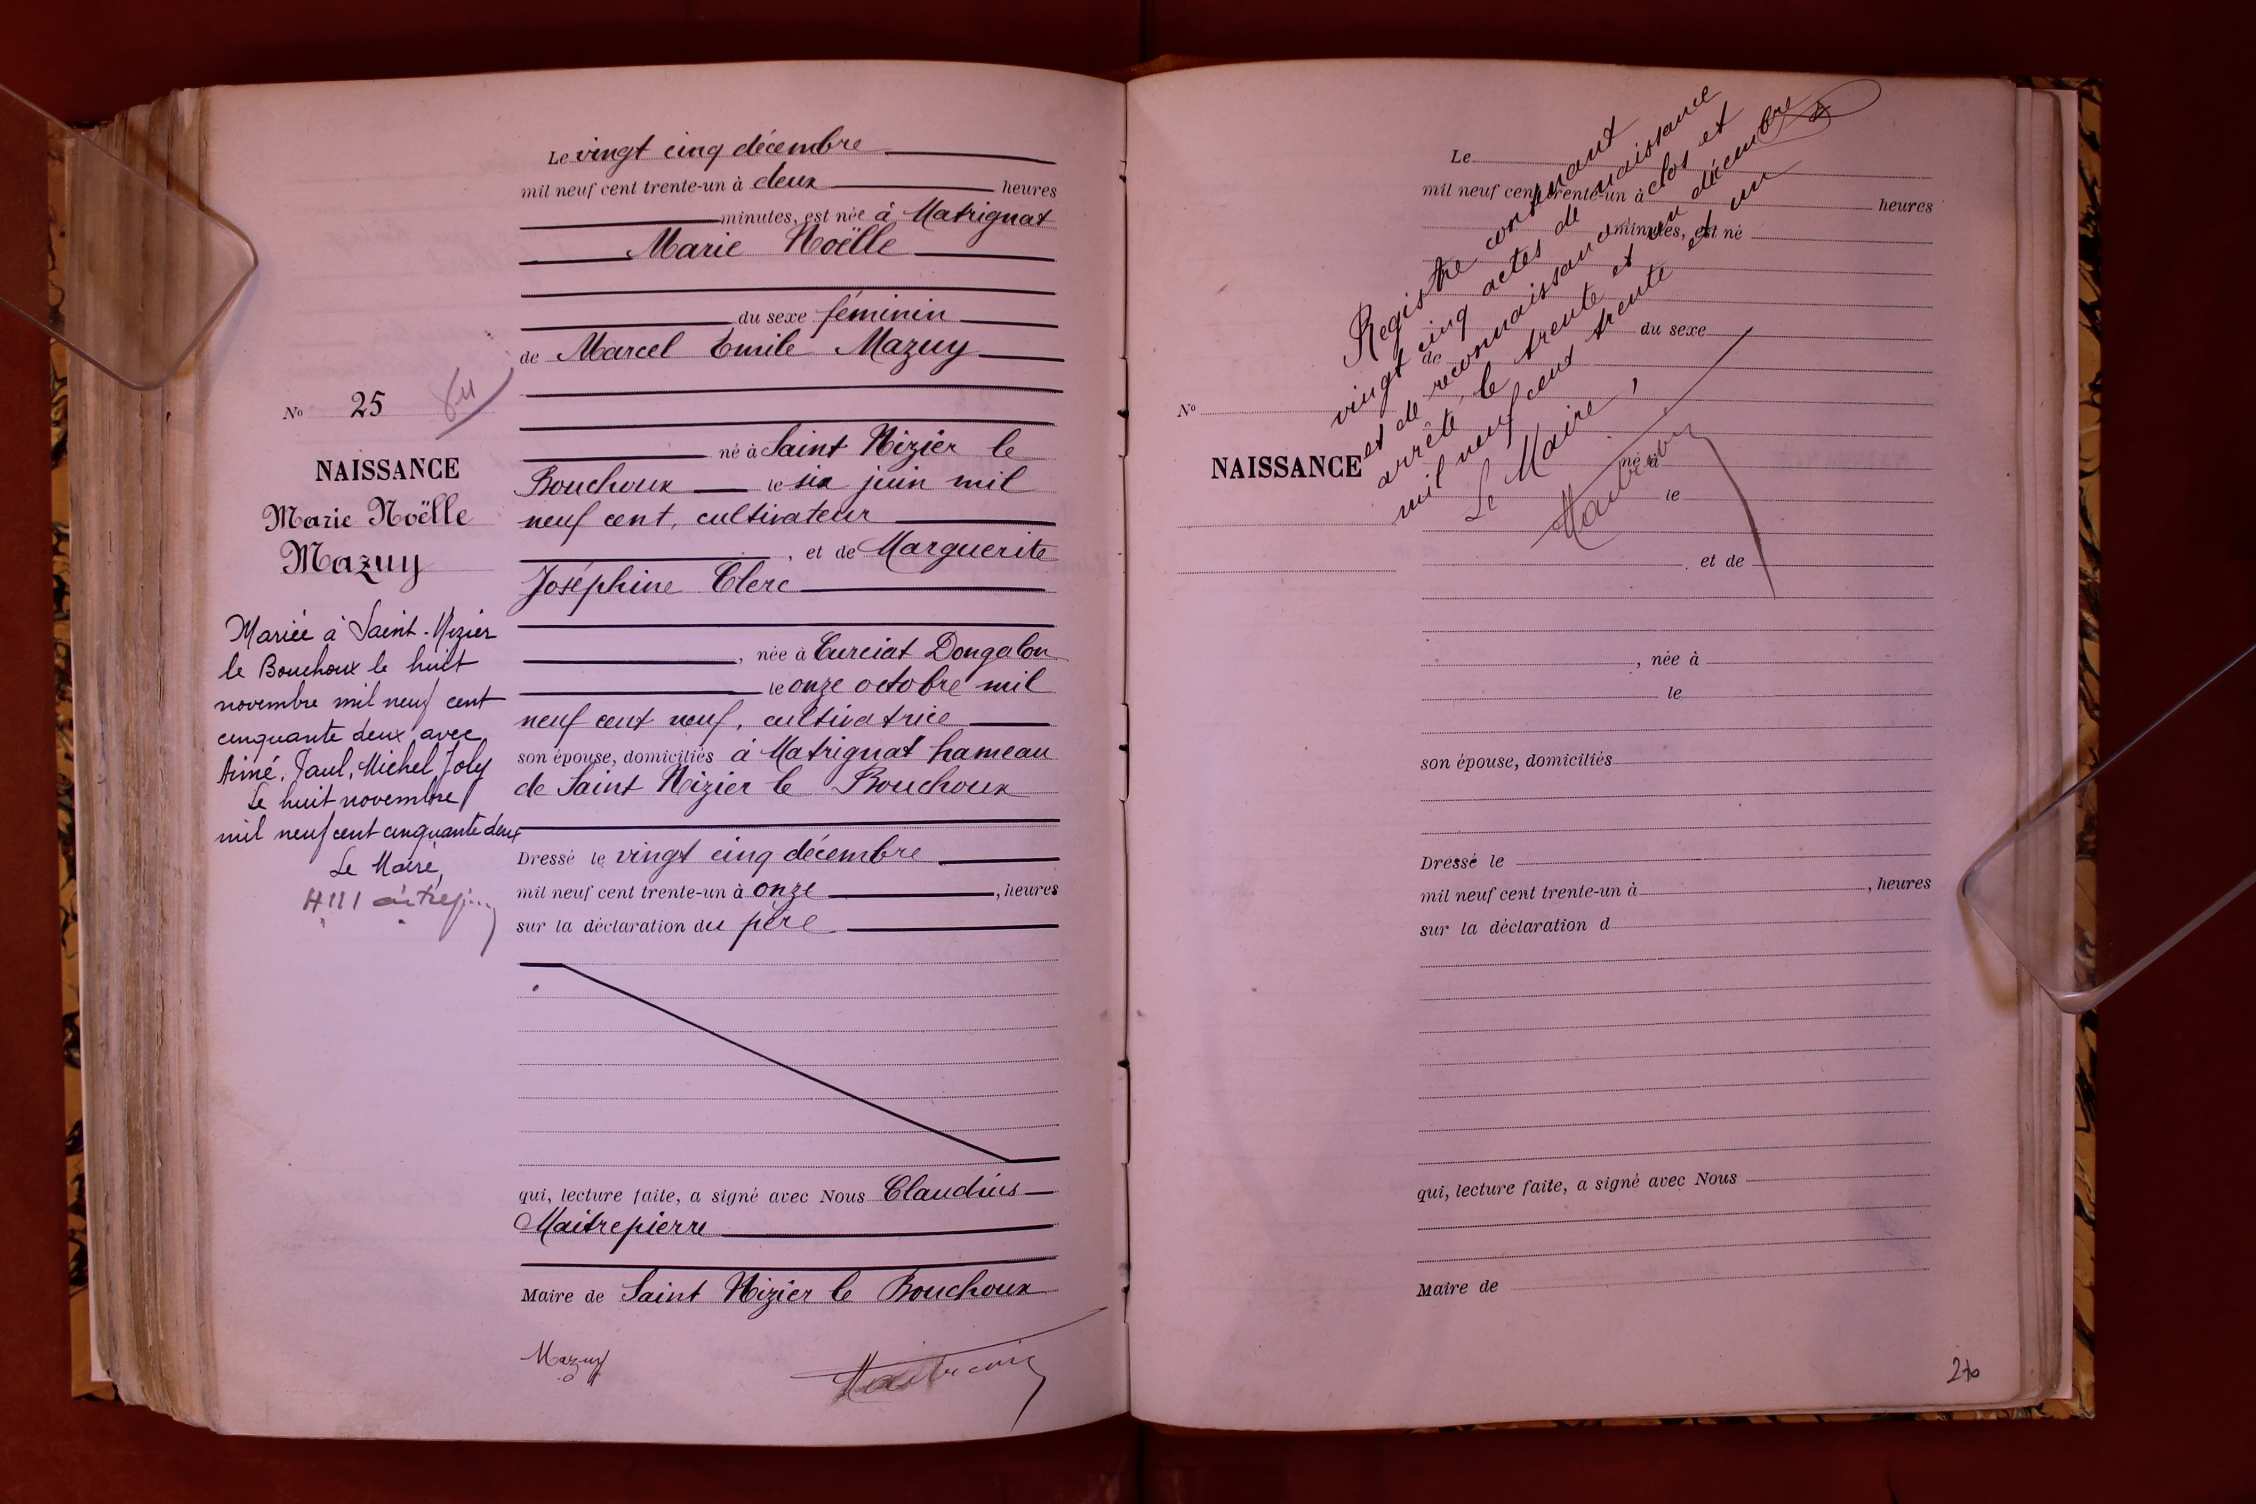 Le vingt cinq décembre
mil neuf cent trente-un à deux heures
minutes, est née à Matrignat
Marie Noëlle
du sexe féminin
de Marcel Emile Mazuy
né à Saint Nizier le
Bouchoux le six juin mil
neuf cent, cultivateur
, et de Marguerite
Joséphine Clerc
, née à Curciat Dongalon
le onze octobre mil
neuf cent neuf, cultivatrice
son épouse, domiciliés à Matrignat hameau
de Saint Nizier le Bouchoux
Dressé le vingt cinq décembre
mil neuf cent trente-un à onze, heures
sur la déclaration du père
qui, lecture faite, a signé avec Nous Claudius
Maitrepierre
Maire de Saint Nizier le Bouchoux
Mazuy
No 25
NAISSANCE
Marie Noëlle
Mazuy
Mariée à Saint-Nizier
le Bouchoux le huit
novembre mil neuf cent
cinquante deux avec
Aimé, Paul, Michel Joly
Le huit novembre
mil neuf cent cinquante deux
Le Maire,
Registre contenant
vingt cinq actes de naissance
et de reconnaissance clos et
arrêté le trente et un décembre
mil neuf cent trente et un
Le Maire,
Le
mil neuf cent trente-un à heures
minutes, est né
du sexe
de
No
NAISSANCE
né à
le
, et de
, née à
le
son épouse, domiciliés
Dressé le
mil neuf cent trente-un à , heures
sur la déclaration d
qui, lecture faite, a signé avec Nous
Maire de